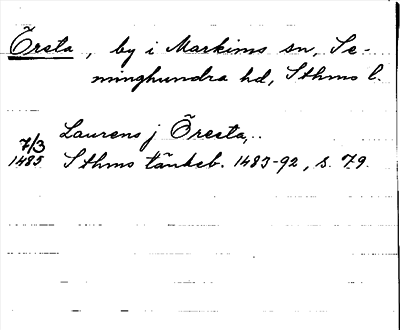 Õrsta, by i Markims sn, Se-
minghundra hd, Sthms l.
Laurens j Õresta,..
7/3
1485 Sthms tänkeb. 1483-92, s. 79.